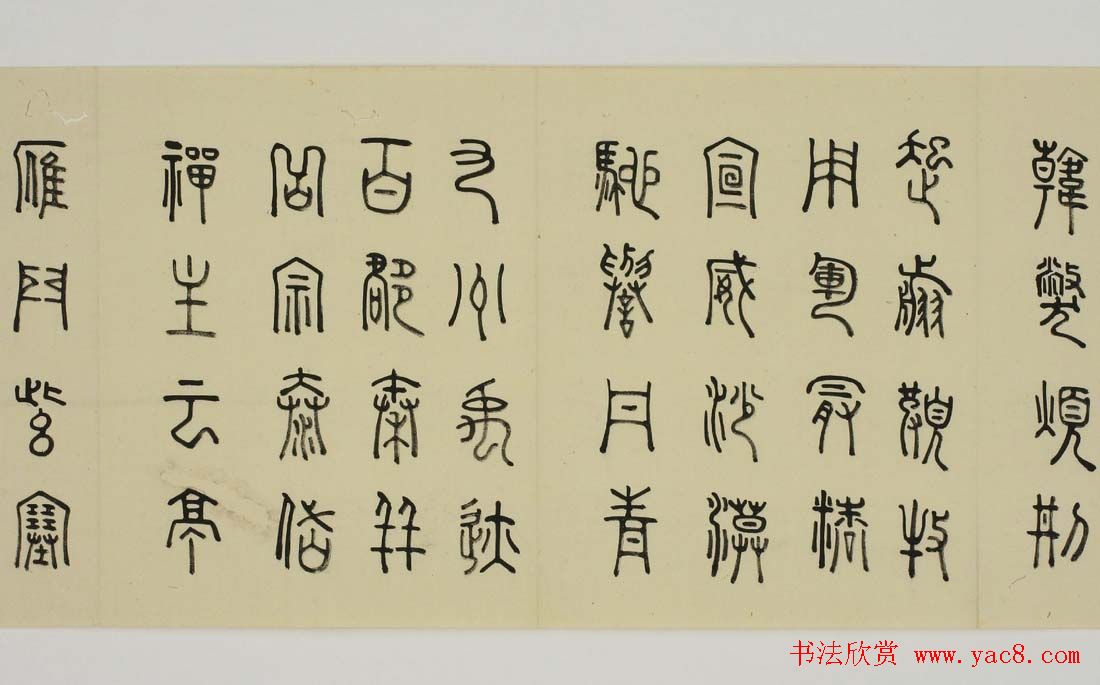 韓弊煩刑
起翦頗牧
用軍最精
宣威沙漠
馳譽丹青
九州禹跡
百郡秦并
岳宗泰岱
禪主云亭
雁門紫塞
书法欣赏 www.yac8.com